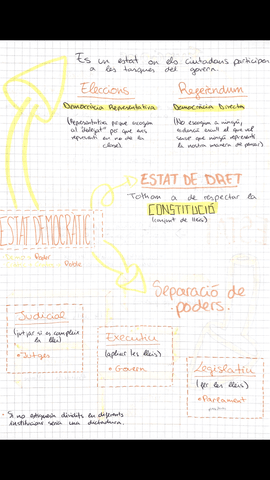 És un estat on els ciutadans participen
a les tasques del govern.
Eleccions
Referèndum
Democràcia Representativa
Democràcia Directa
(Representativa perquè escollim
al "delegat" per que ens
representi en no de la
classe)
(No escollim a ningú,
cadascú escull el que vol
sense que ningú representi
la nostra manera de pensar)
ESTAT DE DRET
Tothom a de respectar la
CONSTITUCIÓ
(conjunt de lleis)
ESTAT DEMOCRÀTIC
Poder
Poble
Separació de
poders.
Judicial
(jutjar si es compleix
la llei)
• Jutges
Executiu
(aplicar les lleis)
• Govern
Legislatiu
(fer les lleis)
• Parlament
• Si no estiguessin dividits en diferents
institucions seria una dictadura.